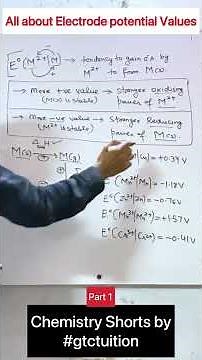 All about Electrode potential Values
E°(M²⁺|M) → tendency to gain e⁻s by
M²⁺ to form M(s)
→ More +ve value → stronger oxidising
(M(s) is stable) power of M²⁺
→ More -ve value → Stronger Reducing
(M²⁺ is stable) power of M(s)
M(s) → M(g)
|Cu) = +0.34 V
E°(Mn²⁺|Mn) = -1.18V
E°(Zn²⁺|Zn) = -0.76V
E°(Mn³⁺|Mn²⁺) = +1.57V
E°(Cr³⁺|Cr²⁺) = -0.41V
Part 1
Chemistry Shorts by
#gtctuition